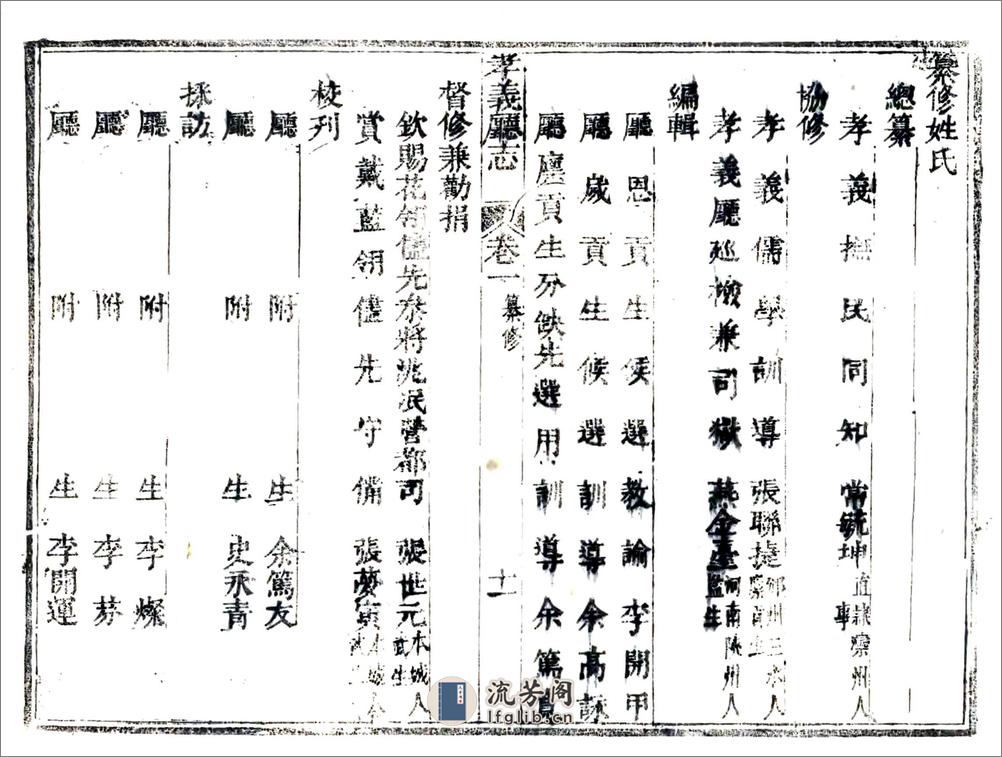 纂修姓氏
總纂
孝義撫民同知常毓坤直隸灤州人
協修
孝義儒學訓導張聯捷邠州三水人
孝義廳廵檢兼司獄燕金臺河南陝州人監生
編輯
廳恩貢生候選教諭李開甲
廳歲貢生候選訓導余高詠
廳廩貢生分缺先選用訓導余篤
孝義廳志 卷一 纂修 十一
督修兼勸捐
欽賜花翎儘先叅將洮岷營都司張世元本城人武生
賞戴藍翎儘先守備張夢寅本城人
校列
廳附生余篤友
廳附生史永青
採訪
廳附生李燦
廳附生李芬
廳附生李開運
流芳阁
lfglib.cn